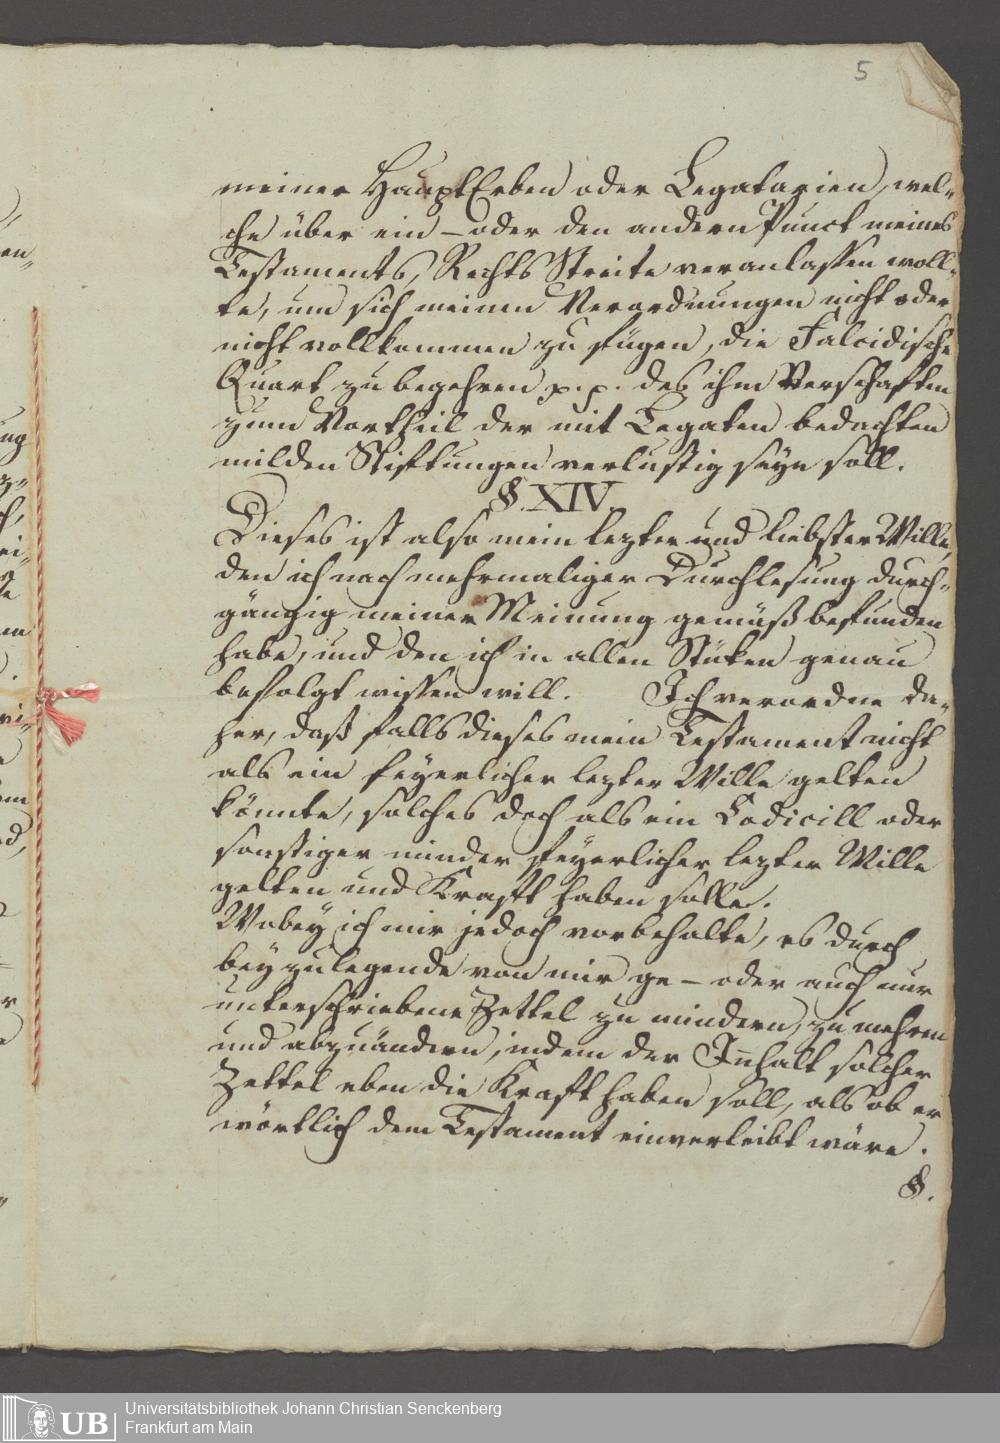 5
meiner HauptErben oder Legatarien, wel-
che über ein- oder den andern Punct meines
Testaments, Rechts Streite veranlassen woll-
te, um sich meinen Verordnungen nicht oder
nicht vollkommen zu fügen, die Falcidische
Quart zu begehren p. p. des ihm Verschafften
zum Vortheil der mit Legaten bedachten
milden Stiftungen verlustig seyn soll.
§. XIV.
Dieses ist also mein lezter und liebster Wille,
den ich nach mehrmaliger Durchlesung durch-
gängig meiner Meinung gemäß befunden
habe, und den ich in allen Stüken genau
befolgt wissen will. Ich verordne da-
her, daß falls dieses mein Testament nicht
als ein feyerlicher lezter Wille gelten
könnte, solches doch als ein Codicill oder
sonstiger minder feyerlicher lezter Wille
gelten und Krafft haben solle.
Wobey ich mir jedoch vorbehalte, es durch
beyzulegende von mir ge- oder auch nur
unterschriebene Zettel zu mindern, zu mehren
und abzuändern, indem der Innhalt solcher
Zettel eben die Krafft haben soll, als ob er
wörtlich dem Testament einverleibt wäre.
§.
UB
Universitätsbibliothek Johann Christian Senckenberg
Frankfurt am Main